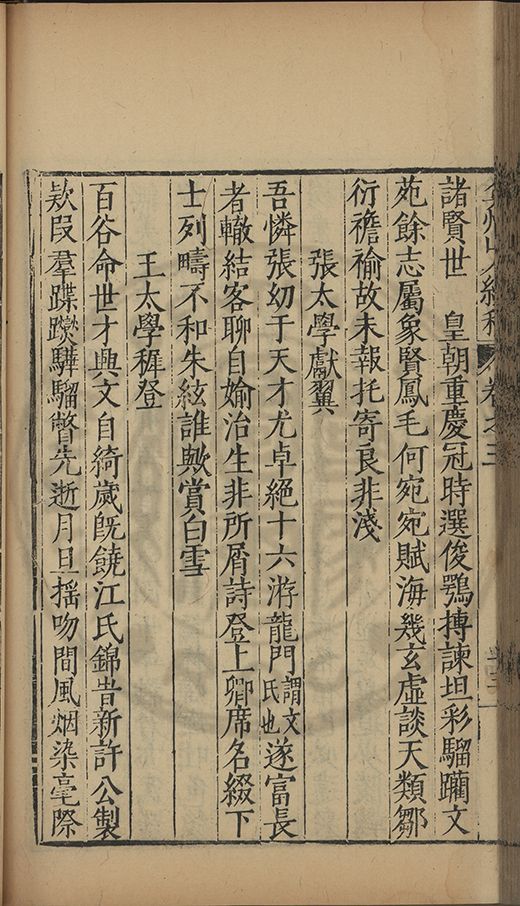 弇州山人續稿 卷之三
諸賢世 皇朝重慶冠時選俊鶚摶諫坦彩騮躪文
苑餘志屬象賢鳳毛何宛宛賦海幾玄虛談天類鄒
衍襜褕故未報托寄良非淺
張太學獻翼
吾憐張幼于天才尤卓絕十六游龍門謂文氏也遂富長
者轍結客聊自媮治生非所屑詩登上卿席名綴下
士列疇不和朱絃誰歟賞白雪
王太學穉登
百谷命世才與文自綺歲旣饒江氏錦昔新許公製
欵段羣蹀躞驊騮瞥先逝月旦揺吻間風烟染毫際